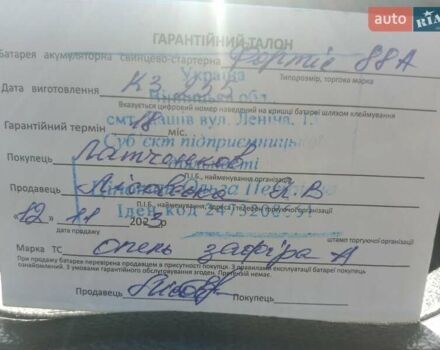 auto RIA
ГАРАНТІЙНИЙ ТАЛОН
Батарея акумуляторна свинцево-стартерна Фортіс 88А
Типорозмір, торгова марка
Україна
Дата виготовлення КЗ
обл.
Вказується цифровий номер наведений на кришці батареї шляхом клеймування
смт. вул. Леніна,
Гарантійний термін 18 міс.
Суб'єкт підприємницької
Покупець
діяльності
П.І.Б., найменування організації
Продавець
П.І.Б., найменування, адреса, телефон торгуючої організації
Іден код
"12" 11 2023
дата продажу
штамп торгуючої організації
Марка ТС опель зафіра А
При продажу батарея перевірена продавцем в присутності покупця. З правилами експлуатації батареї покупець
ознайомлений. З умовами гарантійного обслуговування згоден. Претензій немає.
Продавець Покупець